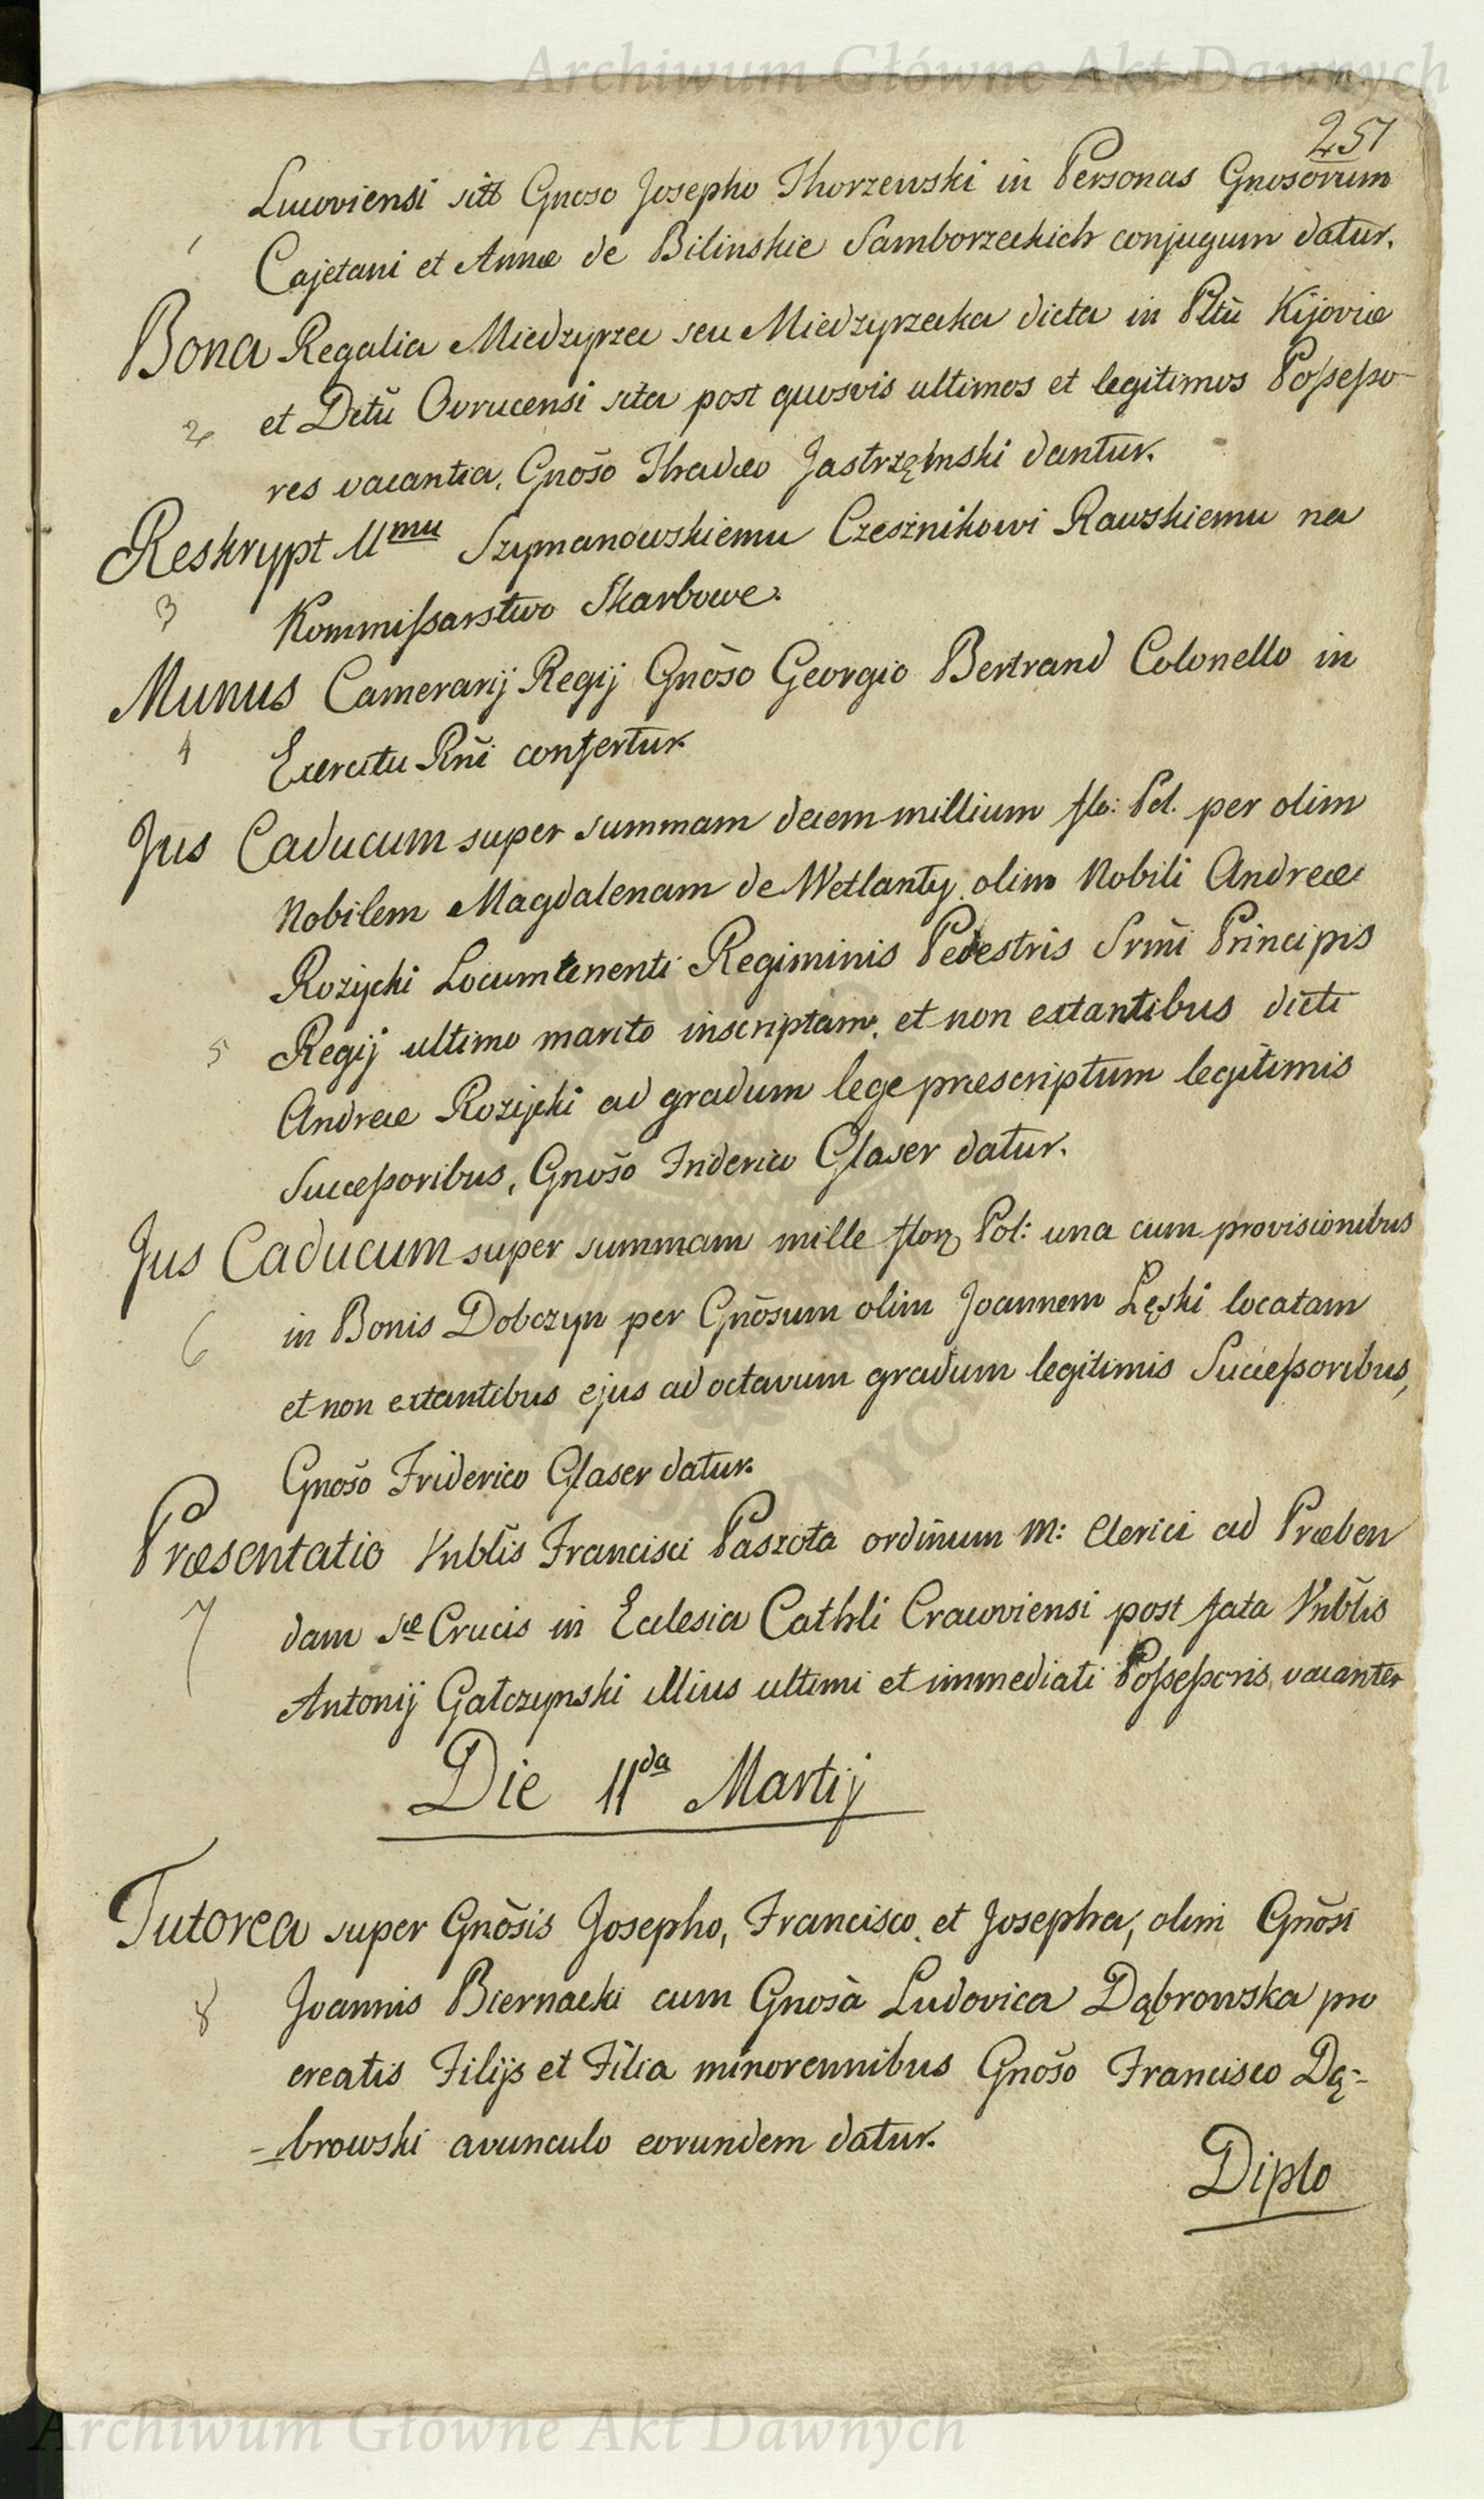 Archiwum Główne Akt Dawnych
257
Lucoviensi sitt Gnoso Josepho Thorzewski in Personas Gnosorum
1 Cajetani et Annæ de Bilinskie Samborzeckich conjugum datur.
Bona Regalia Miedzyrzec seu Miedzyrzecka dicta in Pltũ Kijoviæ
2 et Dctũ Ovrucensi sita post quosvis ultimos et legitimos Poſseſso-
res vacantia, Gnõso Thadæo Jastrzęmski dantur.
Reskrypt Umu Szymanowskiemu Czesznikowi Rawskiemu na
3 Kommiſsarstwo Skarbowe.
Munus Camerarij Regij Gnõso Georgio Bertrand Colonello in
4 Exercitu Rni confertur.
Jus Caducum super summam decem millium flo: Pol. per olim
Nobilem Magdalenam de Wetlanty olim Nobili Andreæ
Rozycki Locumtenenti Regiminis Pedestris Srmi Principis
5 Regij ultimo marito inscriptam, et non extantibus dicti
Andreæ Rozycki ad gradum lege præscriptum legitimis
Succeſsoribus, Gnõso Friderico Glaser datur.
Jus Caducum super summam mille flor Pol: una cum provisionibus
6 in Bonis Dobczyn per Gnõsum olim Joannem Łęski locatam
et non extantibus ejus ad octavum gradum legitimis Succeſsoribus,
Gnõso Friderico Glaser datur.
Præsentatio Vnblis Francisci Paszota ordinum M: Clerici ad Præben
7 dam Sæ Crucis in Ecclesia Cathli Cracoviensi post fata Vnblis
Antonij Gałczynski illius ultimi et immediati Poſseſsoris, vacantem
Die 11da Martij
Tutorea super Gnõsis Josepho, Francisco, et Josepha, olim Gnõsi
8 Joannis Biernacki cum Gnosà Ludovica Dąbrowska pro
creatis Filijs et Filia minorennibus Gnõso Francisco Dą-
-browski avunculo eorundem datur.
Diplo
Archiwum Główne Akt Dawnych